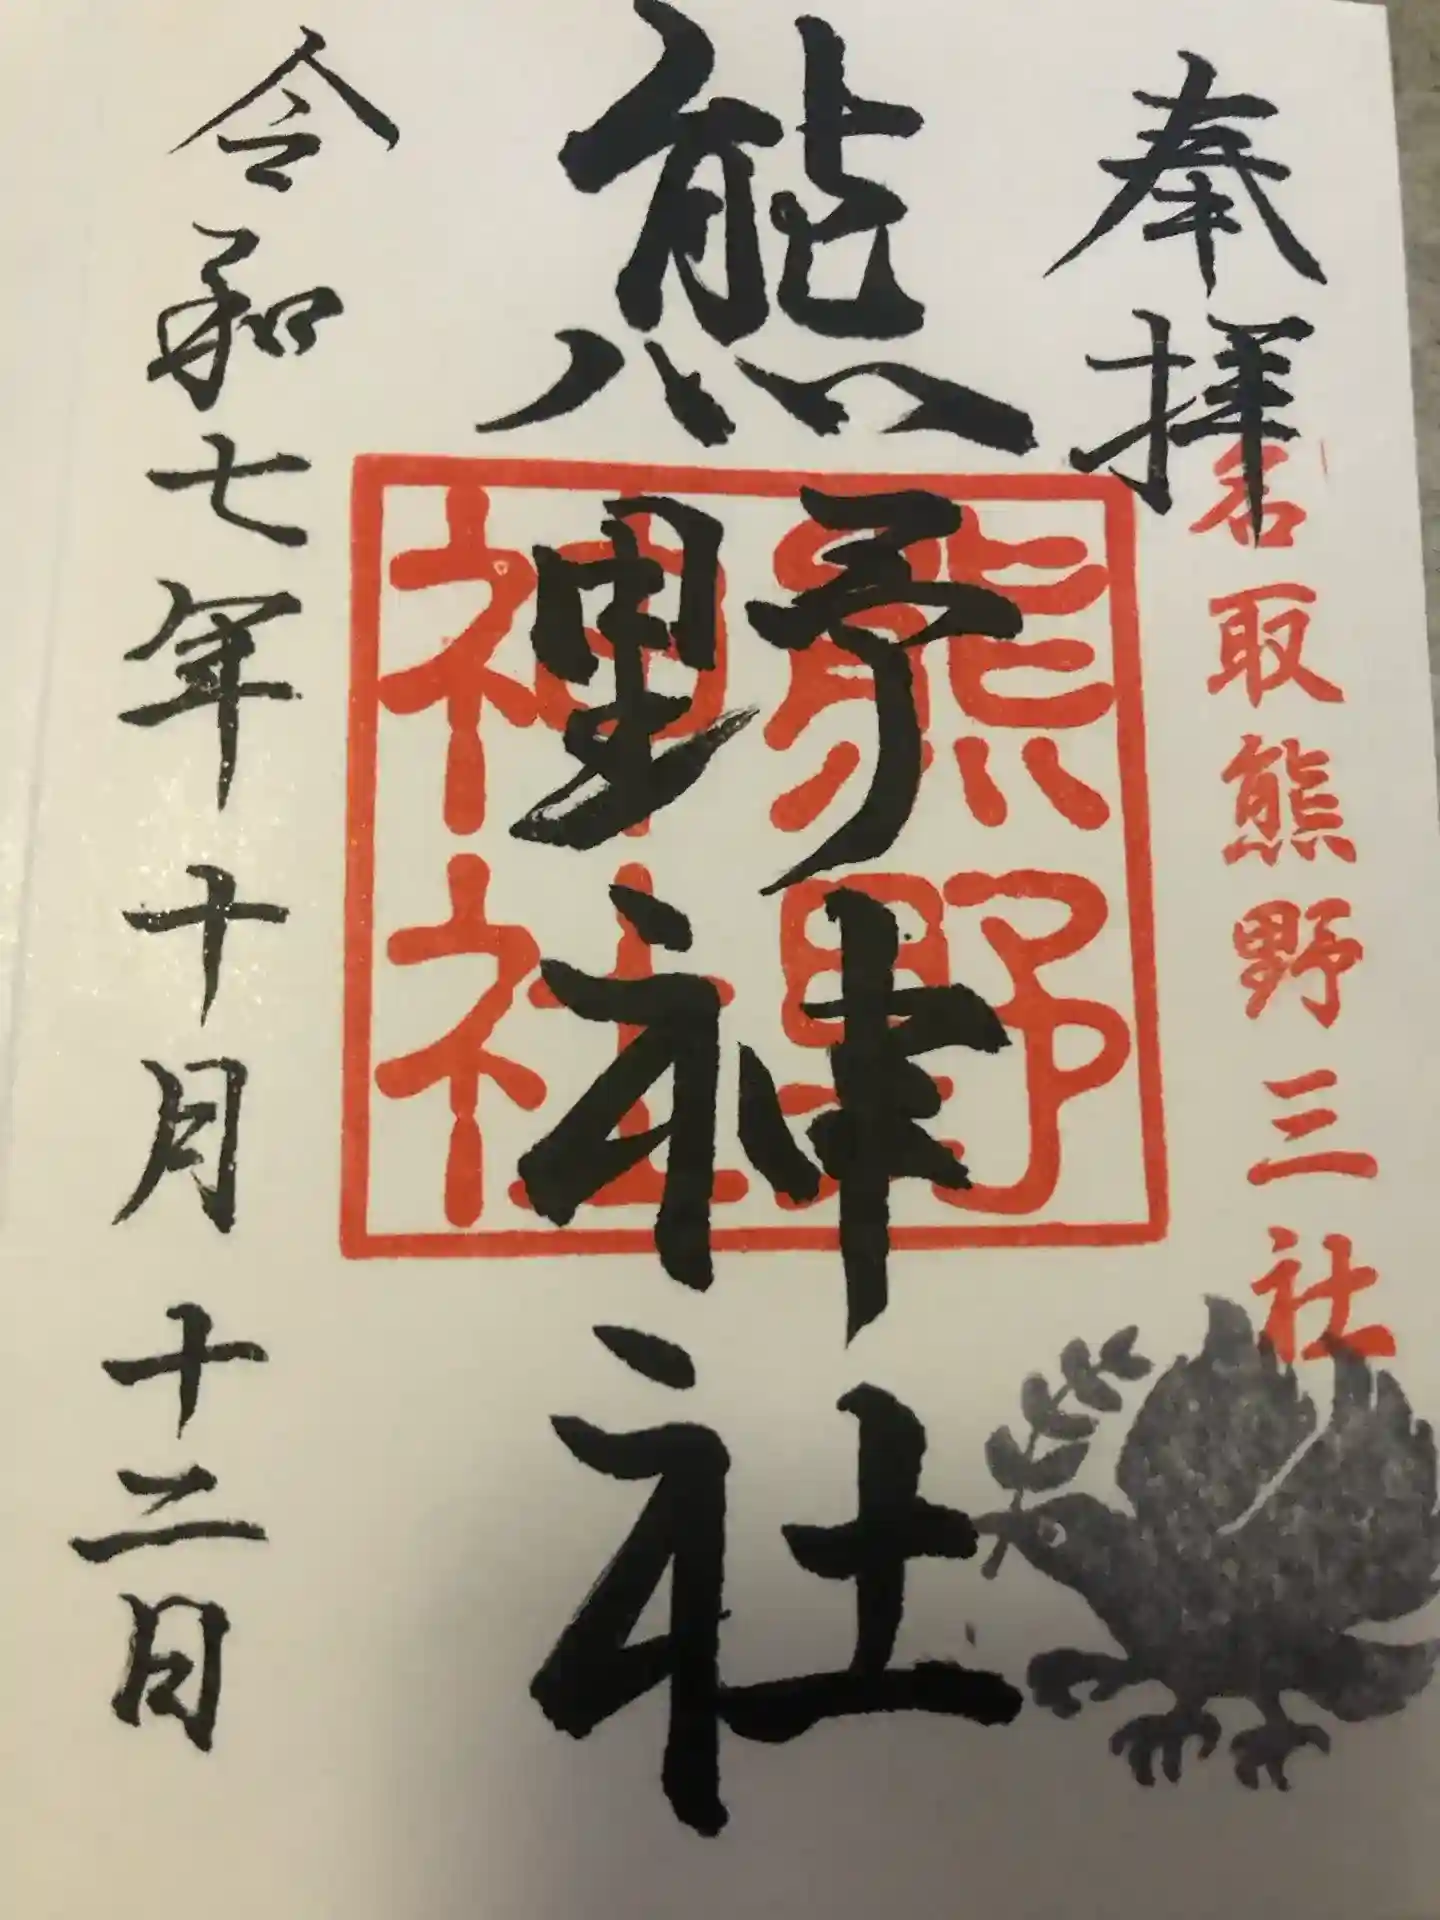 奉拝
名取熊野三社
熊野神社
熊野
神社
令和七年十月十二日